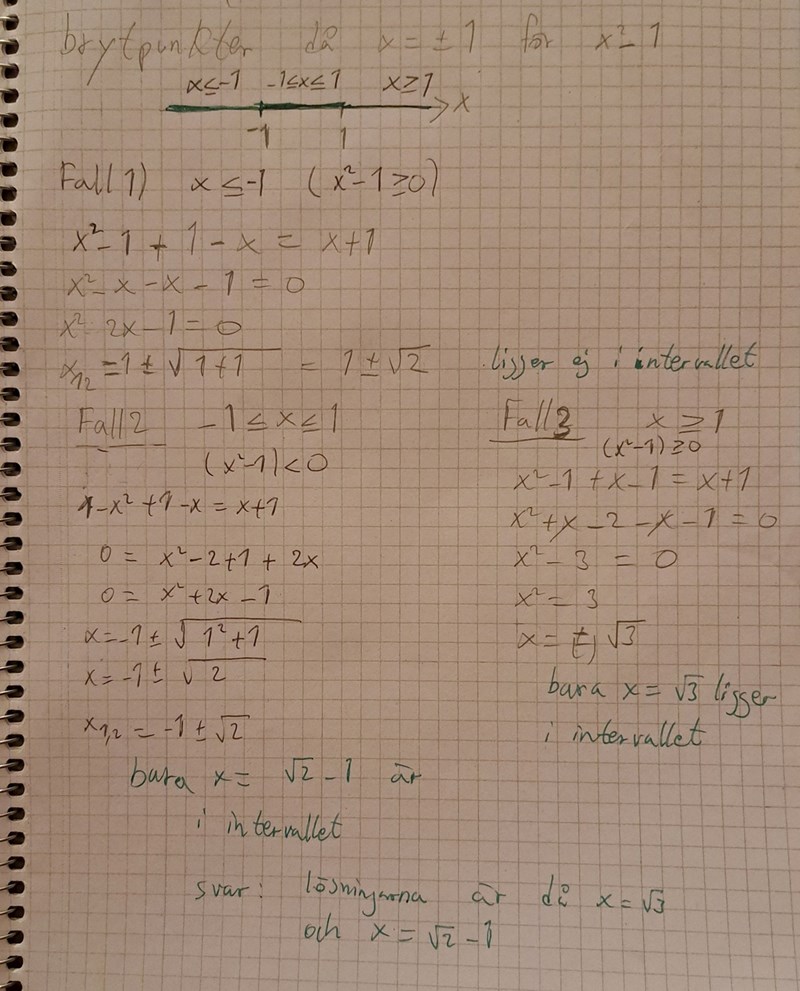 brytpunkter då x = ± 1 för x²-1
x≤-1 -1≤x≤1 x≥1
x
-1 1
Fall 1) x ≤-1 (x²-1≥0)
x²-1 + 1 - x = x+1
x²-x-x-1 = 0
x² 2x-1 = 0
x₁₂ = 1 ± √1+1 = 1 ± √2 ligger ej i intervallet
Fall 2 -1 ≤ x ≤ 1
(x²-1) < 0
1-x²+1-x = x+1
0 = x²-2+1 + 2x
0 = x²+2x-1
x = -1 ± √1²+1
x = -1 ± √2
x₁,₂ = -1 ± √2
bara x = √2 - 1 är
i intervallet
Fall 3 x ≥ 1
(x²-1) ≥ 0
x²-1 + x-1 = x+1
x²+x-2-x-1 = 0
x²-3 = 0
x² = 3
x = (±) √3
bara x = √3 ligger
i intervallet
svar: lösningarna är då x = √3
och x = √2 - 1